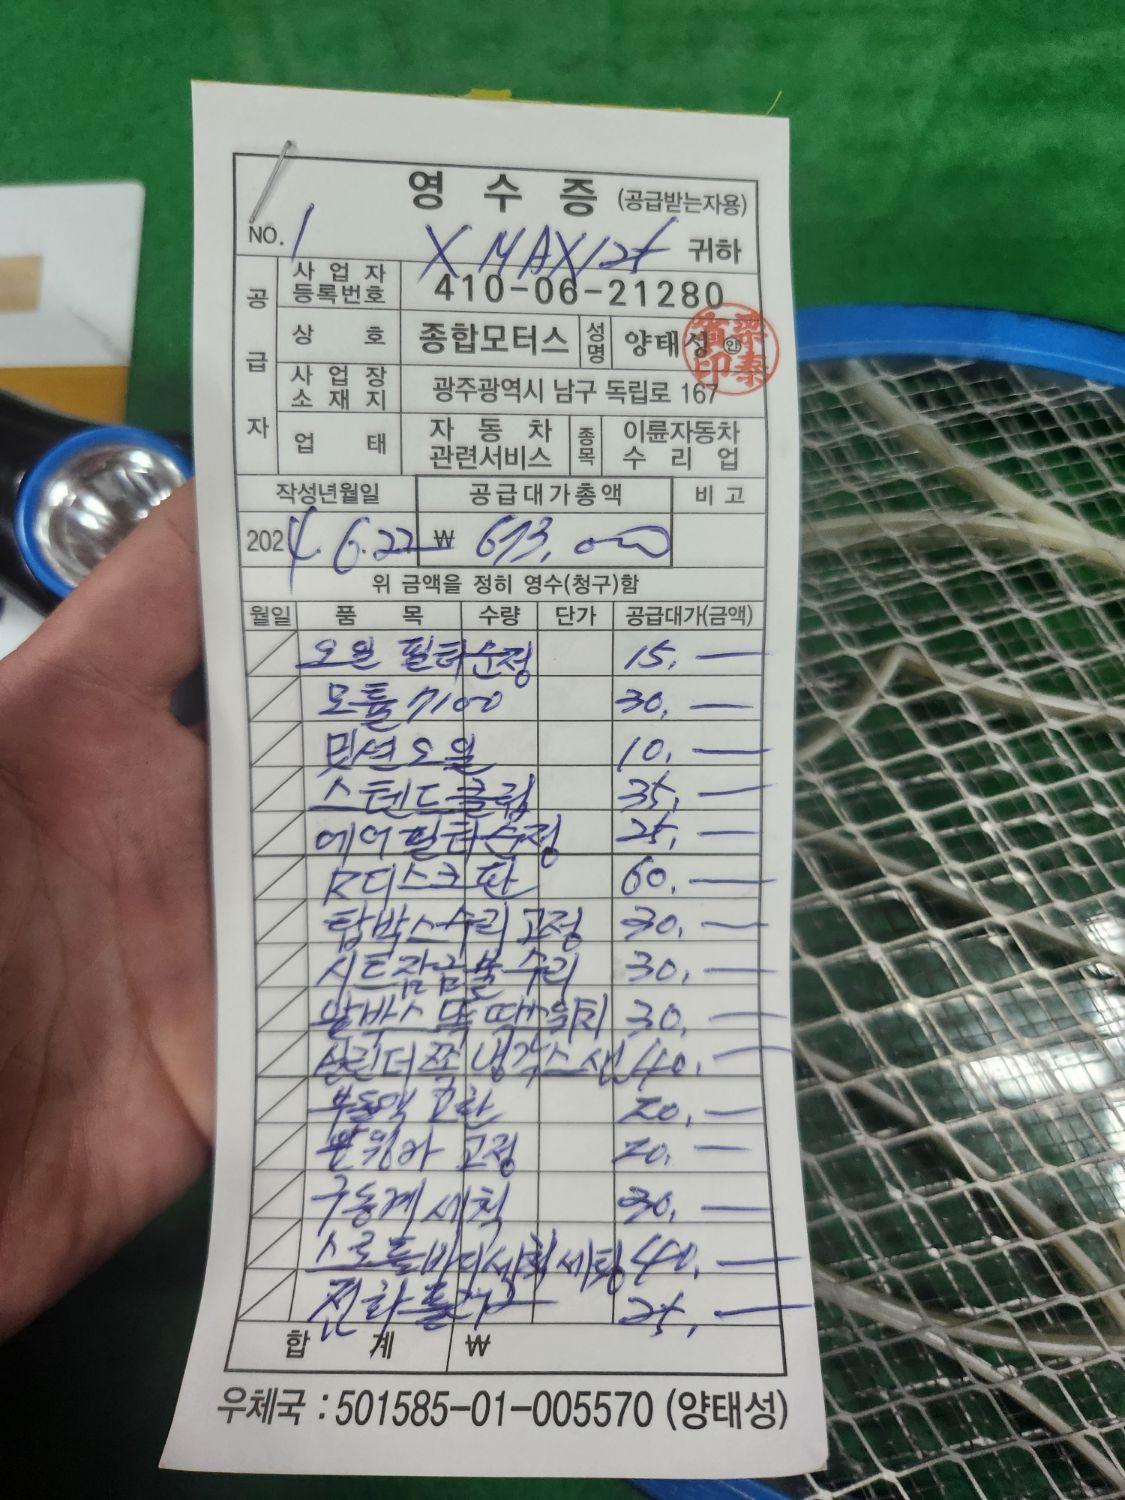 영 수 증 (공급받는자용)
NO. 1 X MAX 125 귀하
공급자
사업자등록번호 410-06-21280
상호 종합모터스 성명 양태성 ㊞
사업장소재지 광주광역시 남구 독립로 167
업태 자동차관련서비스 종목 이륜자동차수리업
작성년월일 공급대가총액 비고
2024. 6. 22 ₩ 613,000
위 금액을 정히 영수(청구)함
월일 품목 수량 단가 공급대가(금액)
오일 필타 순정 15,—
모튤 7100 30,—
밋션오일 10,—
스텐드 클림 35,—
에어필타 순정 25,—
R디스크 판 60,—
탑박스 수리 고정 30,—
시트잠금 불 수리 30,—
30,—
실린더쪽 냉각스 센 40,—
20,—
고정 20,—
구동계 세척 30,—
스로틀바디 세척 세팅 40,—
전화 홀다 25,—
합계 ₩
우체국 : 501585-01-005570 (양태성)